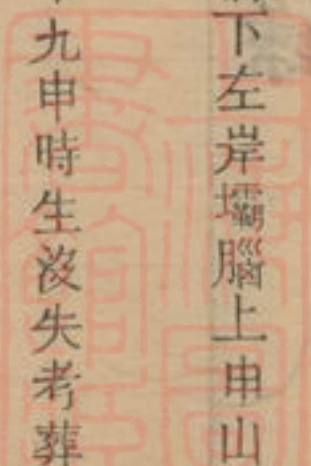 下左岸壩腦上申山
九申時生沒失考葬